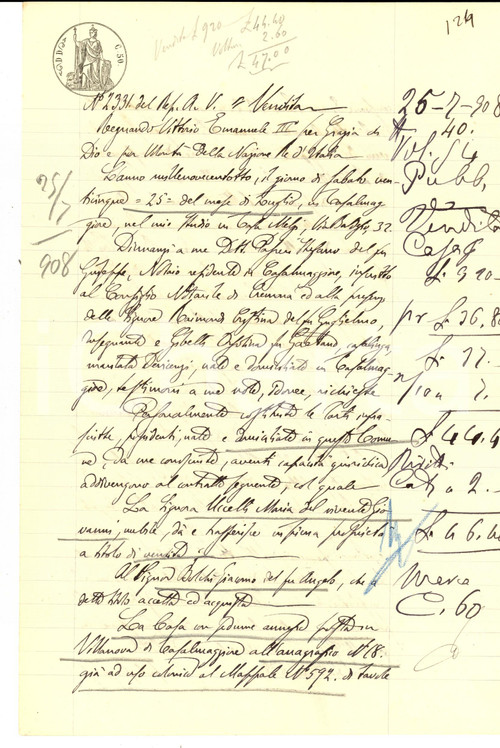 Vendita £ 920 £ 44.40
2.60
£ 47.00
124
C. 50
N° 2331 del Rep. A. V. Vendita
Regnando Vittorio Emanuele III per grazia di
Dio e per Volontà della Nazione Re d'Italia
L'anno millenovecentotto, il giorno di sabato ven-
ticinque = 25 = del mese di Luglio, in Casalmag-
giore, nel mio studio in Casa Melzi, Via 32.
Dinnanzi a me Dott. Stefano del fu
Giuseppe, Notaio residente in Casalmaggiore, inscritto
al Consiglio Notarile di Cremona ed alla presenza
delle Signore Raimondi Cristina del fu Guglielmo,
insegnante e Ghelli fu Gaetano, casalinga,
maritata nate e domiciliate in Casalmag-
giore, testimoni a me note, idonee, richieste
Personalmente costituite le Parti infra-
scritte, possidenti, nate e domiciliate in questo Comu-
ne, da me conosciute, aventi capacità giuridica
addivengono al contratto seguente, col quale
La Signora Uccelli Maria del vivente Gio-
vanni, nubile, dà e trasferisce in piena proprietà
a titolo di vendita
Al Signor Giacomo del fu Angelo, che a
detto titolo accetta ed acquista
La Casa con sedume annesso posta in
Villanova di Casalmaggiore all'anagrafico N° 18.
già ad uso colonico al Mappale N° 592. di tavole
25/7
908
25-7-908
40.
Vol. 54
Pubb.
Vendita
Casa
£ 36,8
£ 44.4
2.
£ 46.
C. 60